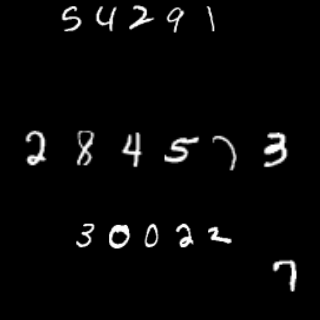 54291
284573
30022
7